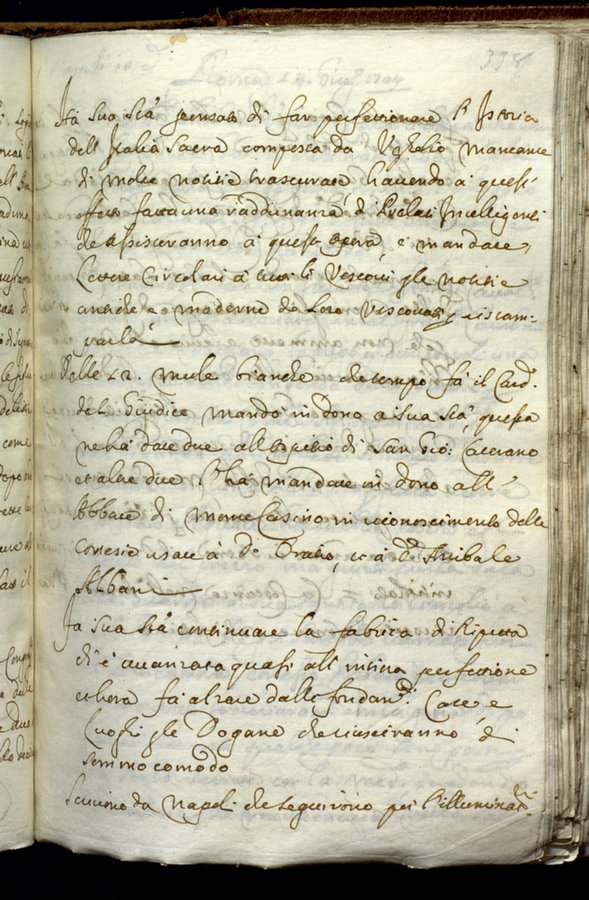 338
Roma 14 Giug.º 1704
Hà Sua Stà pensato di far perfettionare l'Istoria
dell'Italia Sacra composta da Ughelio mancante
di molte notitie trascurate havendo à quest'
effetto fatta una raddunanza di Prelati Intelligenti
che assisteranno à quest'opera, e mandate
lettere Circolari à tutti li Vescovi p le notitie
antiche e moderne de loro Vescovati p ristam-
parla
Delle 12. mule bianche che tempo fà il Card.
del Giudice mandò in dono a Sua Stà, questa
ne hà date due all'Ospitio di San Gio: Laterano
et altre due l'hà mandate in dono all'
Abbate di Monte Casino in riconoscimento delle
cortesie usate à Dn Oratio, et à Dn Anibale
Albani
Fa Sua Stà continuare la fabrica di Ripetta
ch'è avanzata quasi all'intiera perfettione
et hora fà alzare dalli fondam.ti Case e
luoghi p le Dogane che riusciranno di
sommo comodo
Scrivono da Napoli che seguirono poi l'Illuminat.ni